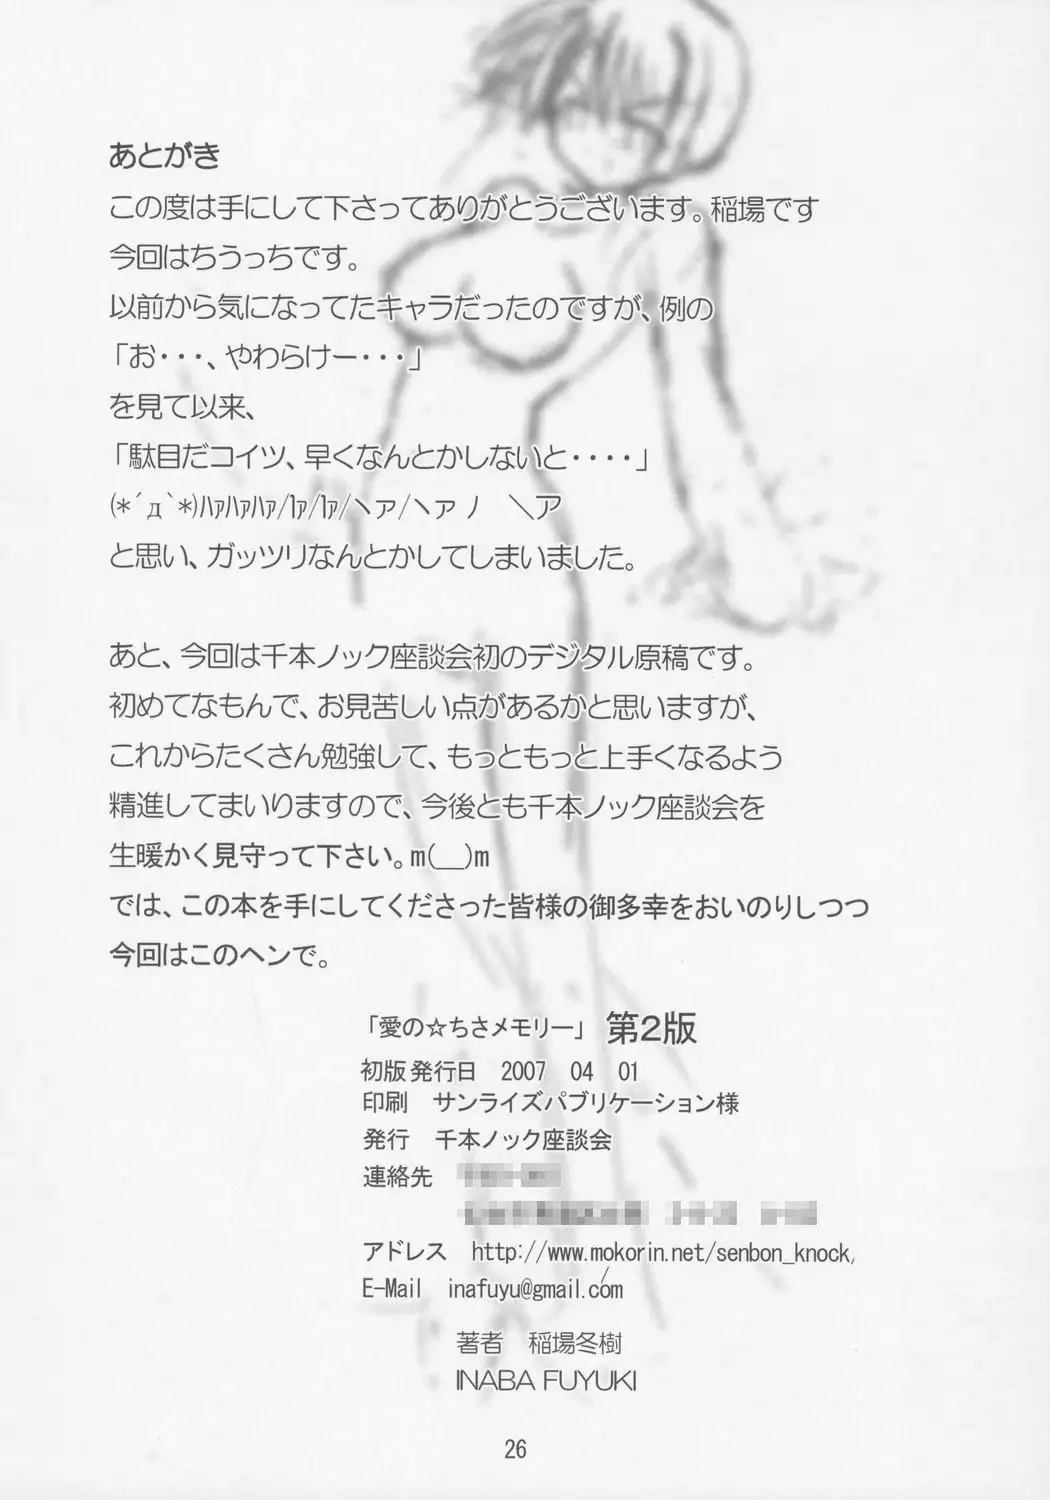 あとがき
この度は手にして下さってありがとうございます。稲場です
今回はちうっちです。
以前から気になってたキャラだったのですが、例の
「お・・・、やわらけー・・・」
を見て以来、
「駄目だコイツ、早くなんとかしないと・・・・」
(*´д`*)ﾊｧﾊｧﾊｧ/ヽｧ/ヽｧ/ヽァ/ヽァ ﾉ ＼ア
と思い、ガッツリなんとかしてしまいました。
あと、今回は千本ノック座談会初のデジタル原稿です。
初めてなもんで、お見苦しい点があるかと思いますが、
これからたくさん勉強して、もっともっと上手くなるよう
精進してまいりますので、今後とも千本ノック座談会を
生暖かく見守って下さい。m(__)m
では、この本を手にしてくださった皆様の御多幸をおいのりしつつ
今回はこのヘンで。
「愛の☆ちさメモリー」 第2版
初版発行日 2007 04 01
印刷 サンライズパブリケーション様
発行 千本ノック座談会
連絡先
アドレス http://www.mokorin.net/senbon_knock/
E-Mail inafuyu@gmail.com
著者 稲場冬樹
INABA FUYUKI
26